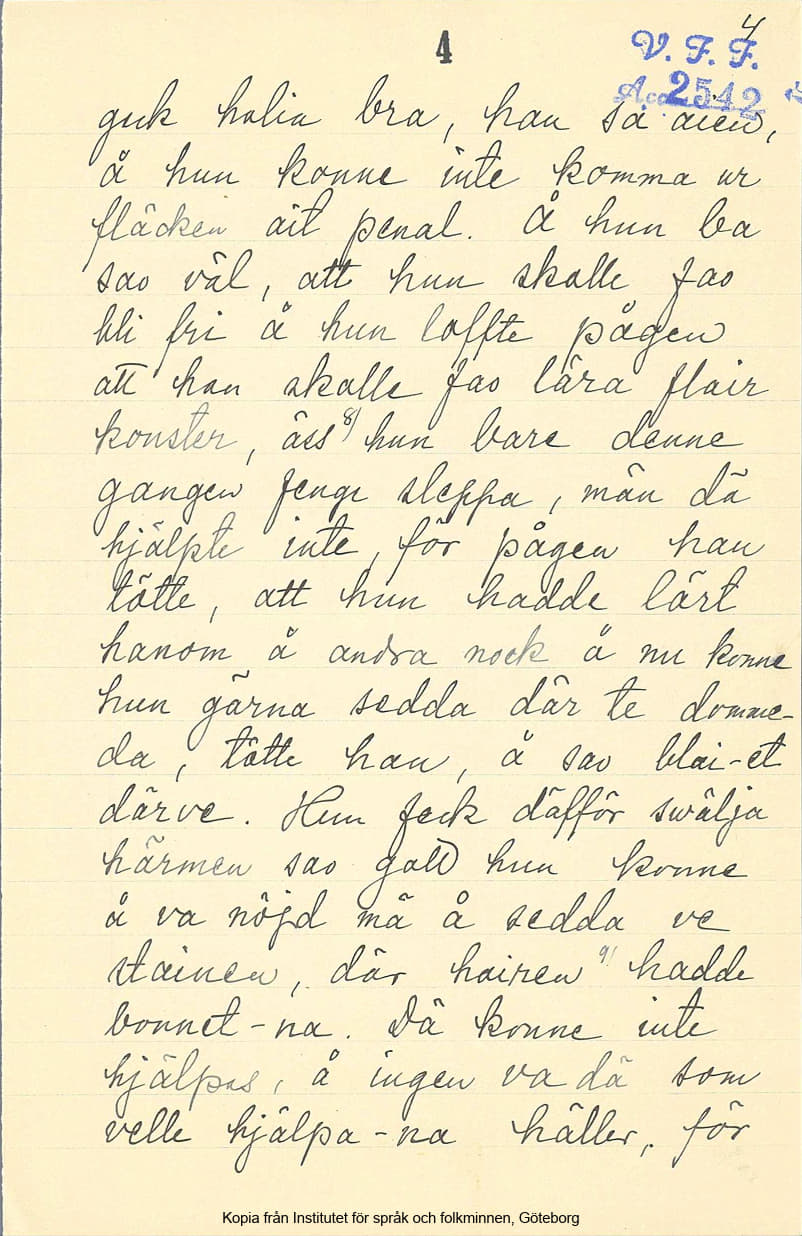 4
4
V. F. F.
Acc. 2542
guk holia bra, han sa aien,
å hun konne inte komma ur
fläcken ait penal. Å hun ba
sao väl, att hun skolle fao
bli fri å hun loffte pågen
att han skolle fao lära flair
konster, äss 8) hun bare denne
gangen fenge sleppa, män dä
hjälpte inte, för pågen han
tötte, att hun hadde lärt
hanom å andra nock å nu konne
hun gärna sedda där te domme-
da, tötte han, å sao blai-et
därve. Hun feck däfför swälja
härmen sao gott hun konne
å va nöjd mä å sedda ve
stainen, där hairen 9) hadde
bonnet-na. Dä konne inte
hjälpas, å ingen va dä som
velle hjälpa-na häller, för
Kopia från Institutet för språk och folkminnen, Göteborg